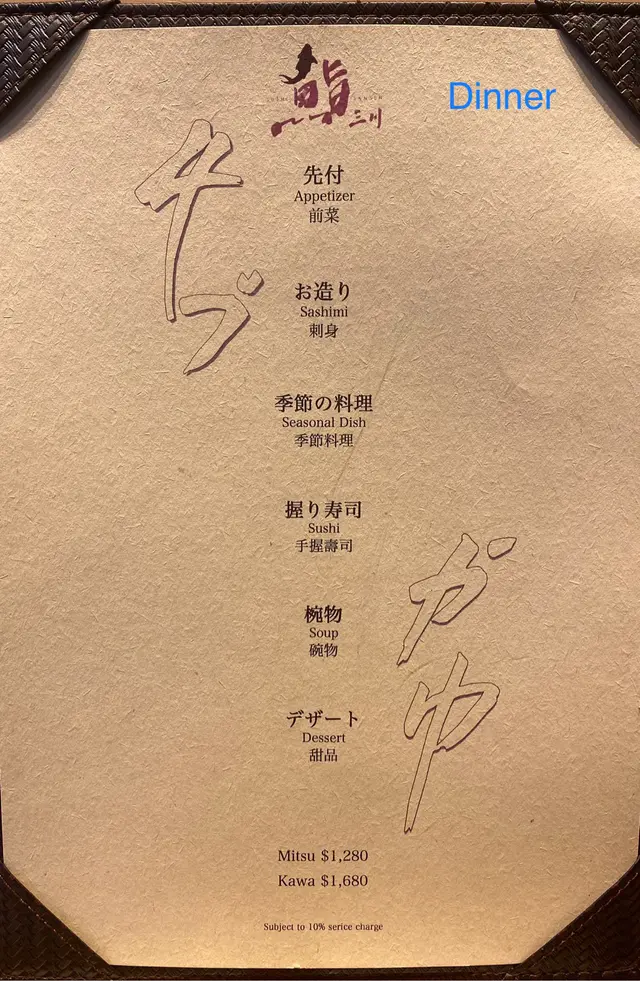 鮨
三川
Dinner
先付
Appetizer
前菜
お造り
Sashimi
刺身
季節の料理
Seasonal Dish
季節料理
握り寿司
Sushi
手握壽司
椀物
Soup
碗物
デザート
Dessert
甜品
Mitsu $1,280
Kawa $1,680
Subject to 10% serice charge